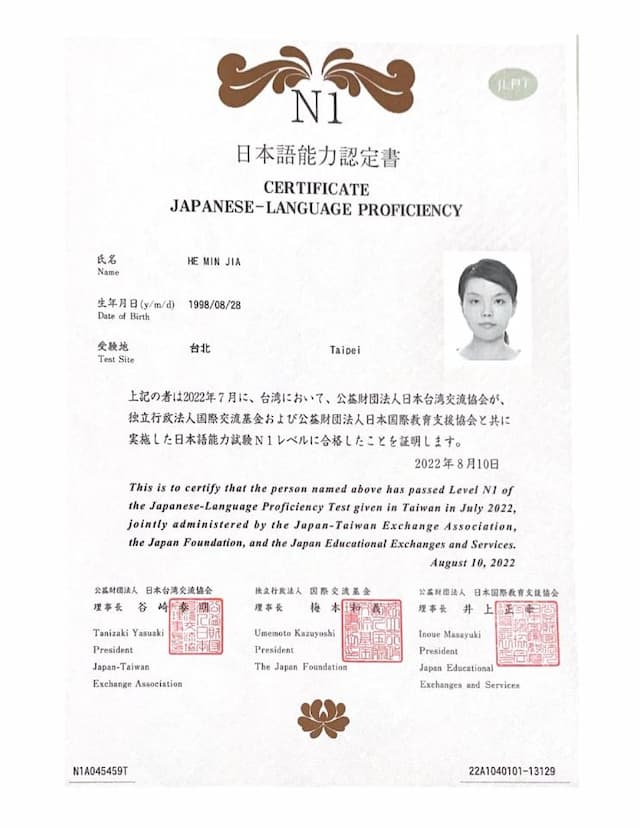 JLPT
N1
日本語能力認定書
CERTIFICATE
JAPANESE-LANGUAGE PROFICIENCY
氏名
Name
HE MIN JIA
生年月日(y/m/d)
Date of Birth
1998/08/28
受験地
Test Site
台北 Taipei
上記の者は2022年7月に、台湾において、公益財団法人日本台湾交流協会が、
独立行政法人国際交流基金および公益財団法人日本国際教育支援協会と共に
実施した日本語能力試験N1レベルに合格したことを証明します。
2022年8月10日
This is to certify that the person named above has passed Level N1 of
the Japanese-Language Proficiency Test given in Taiwan in July 2022,
jointly administered by the Japan-Taiwan Exchange Association,
the Japan Foundation, and the Japan Educational Exchanges and Services.
August 10, 2022
公益財団法人 日本台湾交流協会
理事長 谷崎泰明
Tanizaki Yasuaki
President
Japan-Taiwan
Exchange Association
独立行政法人 国際交流基金
理事長 梅本和義
Umemoto Kazuyoshi
President
The Japan Foundation
公益財団法人 日本国際教育支援協会
理事長 井上正幸
Inoue Masayuki
President
Japan Educational
Exchanges and Services
N1A045459T
22A1040101-13129